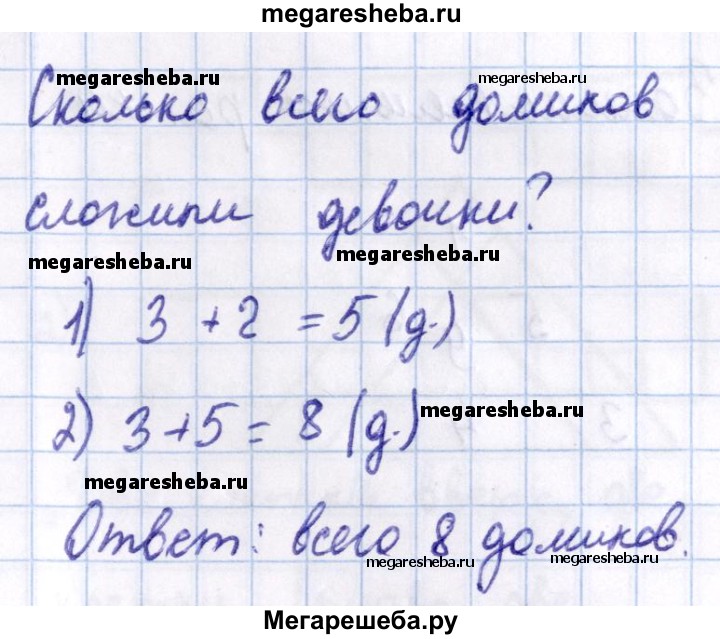 megaresheba.ru
megaresheba.ru megaresheba.ru
Сколько всего домиков
сложили девочки?
megaresheba.ru megaresheba.ru
1) 3 + 2 = 5 (д.)
2) 3 + 5 = 8 (д.) megaresheba.ru
megaresheba.ru
Ответ: всего 8 домиков.
megaresheba.ru megaresheba.ru
Мегарешеба.ру